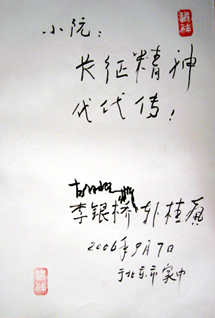 小阮：
长征精神
代代传！
李银桥 韩桂馨
2006年9月7日
于北京市家中